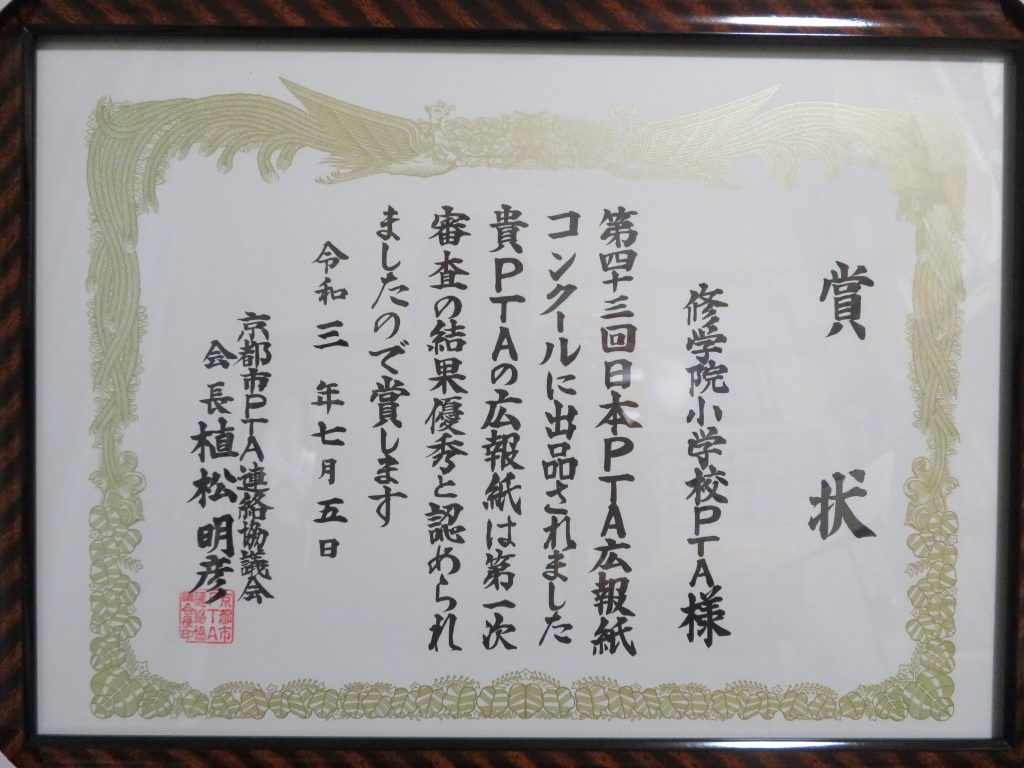 賞状
修学院小学校PTA様
第四十三回日本PTA広報紙
コンクールに出品されました
貴PTAの広報紙は第一次
審査の結果優秀と認められ
ましたので賞します
令和三年七月五日
京都市PTA連絡協議会
会長植松明彦
京都市
PTA
連絡協
議会長印